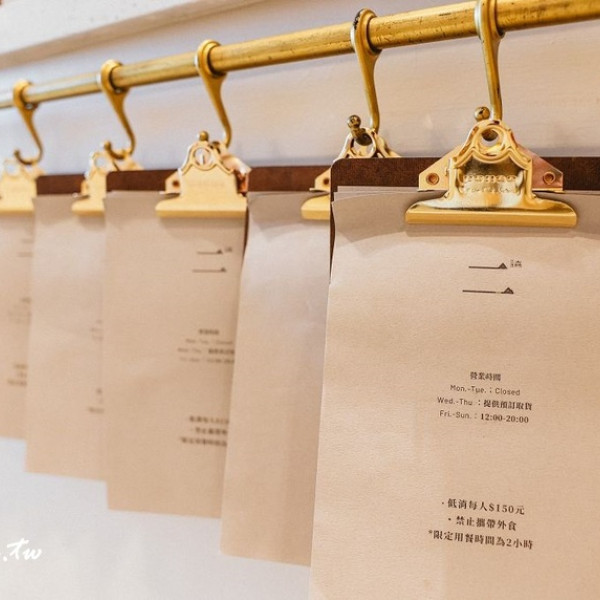 營業時間
Mon.-Tue.：Closed
Wed.-Thu.：提供預訂取貨
Fri.-Sun.：12:00-20:00
·低消每人$150元
·禁止攜帶外食
*限定用餐時間為2小時
.tw